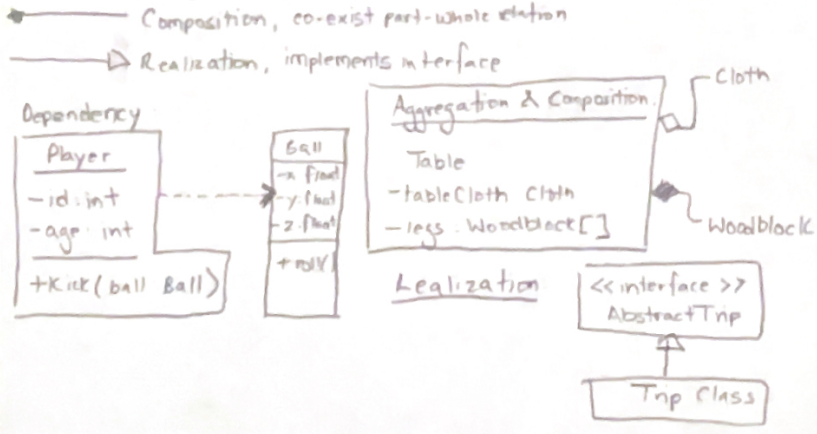 Composition, co-exist part-whole relation
Realization, implements interface
Dependency
Player
-id: int
-age: int
+Kick(ball Ball)
Ball
-x float
-y: float
-z: float
+ roll(
Aggregation & Composition.
Table
-tableCloth Cloth
-legs: Woodblock[]
Cloth
Woodblock
Lealization
<<interface>>
AbstractTrip
Trip Class